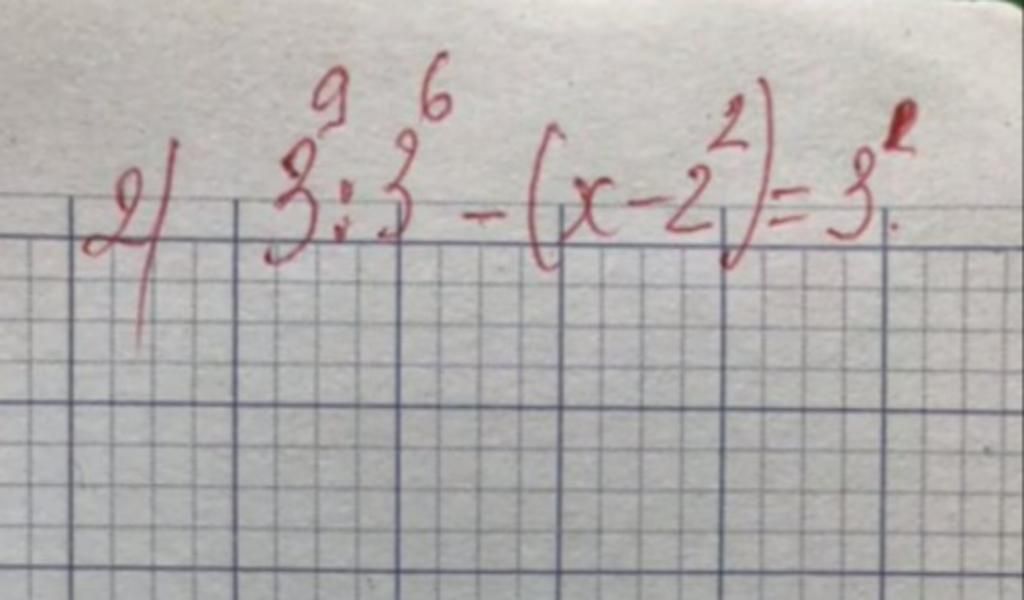 2) 3⁹ : 3⁶ - (x - 2²) = 3².